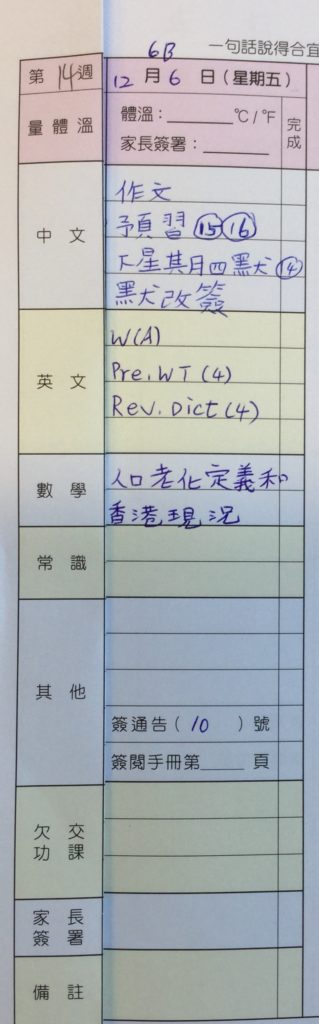 6B 一句話說得合宜
第14週 12月6日(星期五)
量體溫 體溫：______℃/℉ 完成
家長簽署：______
中文 作文
預習⑮⑯
下星其月四黑犬⑭
黑犬改簽
英文 W(A)
Pre. WT (4)
Rev. Dict (4)
數學 人口老化定義和
香港現況
常識
其他
簽通告( 10 )號
簽閱手冊第____頁
欠交功課
家長簽署
備註